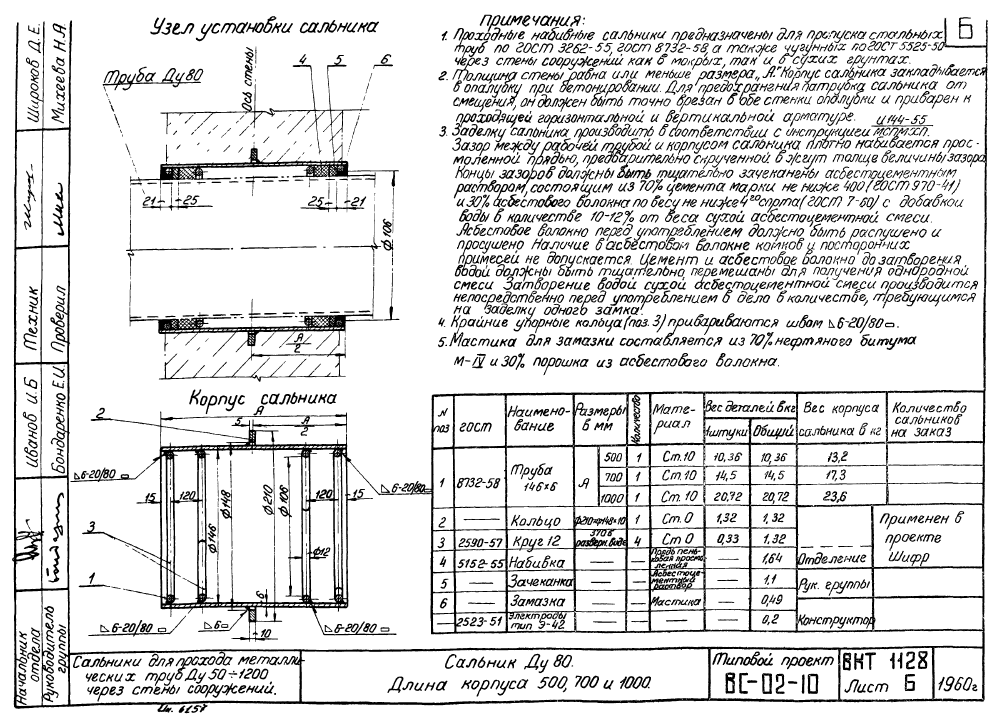 Узел установки сальника
Ось стены
Труба Ду 80
4
5
6
21
25
25
21
ф106
А
2
Корпус сальника
А
5
А
2
2
6-20/80
6-20/80
15
120
ф146
ф148
ф210
ф106
120
15
ф12
3
1
6
6-20/80
6
6-20/80
10
Примечания:
Б
1. Проходные набивные сальники предназначены для пропуска стальных
труб по ГОСТ 3262-55, ГОСТ 8732-58, а также чугунных по ГОСТ 5525-50
через стены сооружений как в мокрых, так и в сухих грунтах.
2. Толщина стены равна или меньше размера „А". Корпус сальника закладывается
в опалубку при бетонировании. Для предохранения патрубка сальника от
смещения, он должен быть точно врезан в обе стенки опалубки и приварен к
проходящей горизонтальной и вертикальной арматуре.
И144-55
3. Заделку сальника производить в соответствии с инструкцией МСПМХП.
Зазор между рабочей трубой и корпусом сальника плотно набивается прос-
моленной прядью, предварительно скрученной в жгут толще величины зазора
Концы зазоров должны быть тщательно зачеканены асбестоцементным
раствором, состоящим из 70% цемента марки не ниже 400 (ГОСТ 970-41)
и 30% асбестового волокна по весу не ниже 4го сорта (ГОСТ 7-60) с добавкой
воды в количестве 10-12% от веса сухой асбестоцементной смеси.
Асбестовое волокно перед употреблением должно быть распушено и
просушено Наличие в асбестовом волокне комков и посторонних
примесей не допускается. Цемент и асбестовое волокно до затворения
водой должны быть тщательно перемешаны для получения однородной
смеси Затворение водой сухой асбестоцементной смеси производится
непосредственно перед употреблением в дело в количестве, требующимся
на заделку одного замка.
4. Крайние упорные кольца (поз. 3) привариваются швом 6-20/80.
5. Мастика для замазки составляется из 70% нефтяного битума
М-IV и 30% порошка из асбестового волокна.
N поз | ГОСТ | Наимено- вание | Размеры в мм | Количество | Мате- риал | Вес деталей в кг | Вес корпуса сальника в кг | Количество сальников на заказ
Штуки | Общий
1 | 8732-58 | Труба 146×6 | А | 500 | 1 | Ст.10 | 10,36 | 10,36 | 13,2
700 | 1 | Ст.10 | 14,5 | 14,5 | 17,3
1000 | 1 | Ст.10 | 20,72 | 20,72 | 23,6
2 | — | Кольцо | ф210×ф148×10 | 1 | Ст.0 | 1,32 | 1,32
3 | 2590-57 | Круг 12 | 370 в разверн. виде | 4 | Ст 0 | 0,33 | 1.32
4 | 5152-55 | Набивка | — | — | Прядь пень- ковая просмо- ленная | — | 1,64
5 | — | Зачеканка | — | — | Асбестоце- ментный раствор | — | 1.1
6 | — | Замазка | — | — | Мастика | — | 0,49
2523-51 | Электроды тип Э-42 | — | — | — | — | 0,2
Отделение
Рук. группы
Конструктор
Применен в
проекте
Шифр
Сальники для прохода металли-
ческих труб Ду 50÷1200
через стены сооружений.
Сальник Ду 80.
Длина корпуса 500, 700 и 1000.
Типовой проект
ВС-02-10
ВКТ 1128
Лист Б
1960г
Ин. 6157
Начальник отдела
Иванов И.Б
Техник
Широков Д.Е.
Руководитель группы
Бондаренко Е.И.
Проверил
Михеева Н.А.